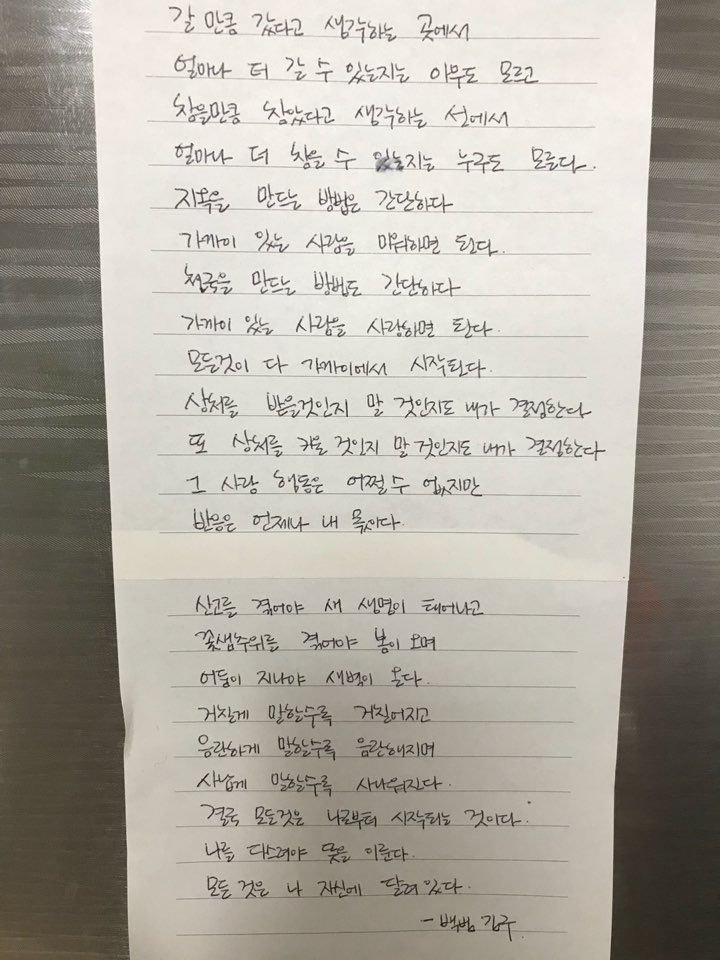 갈 만큼 갔다고 생각하는 곳에서
얼마나 더 갈 수 있는지는 아무도 모르고
참을만큼 참았다고 생각하는 선에서
얼마나 더 참을 수 있는지는 누구도 모른다.
지옥을 만드는 방법은 간단하다
가까이 있는 사람을 미워하면 된다.
천국을 만드는 방법도 간단하다
가까이 있는 사람을 사랑하면 된다.
모든것이 다 가까이에서 시작된다.
상처를 받을것인지 말 것인지도 내가 결정한다
또 상처를 키울 것인지 말 것인지도 내가 결정한다
그 사람 행동은 어쩔 수 없지만
반응은 언제나 내 몫이다.
산고를 겪어야 새 생명이 태어나고
꽃샘추위를 겪어야 봄이 오며
어둠이 지나야 새벽이 온다.
거칠게 말할수록 거칠어지고
음란하게 말할수록 음란해지며
사납게 말할수록 사나워진다.
결국 모든것은 나로부터 시작되는 것이다.
나를 다스려야 뜻을 이룬다.
모든 것은 나 자신에 달려있다.
- 백범 김구.